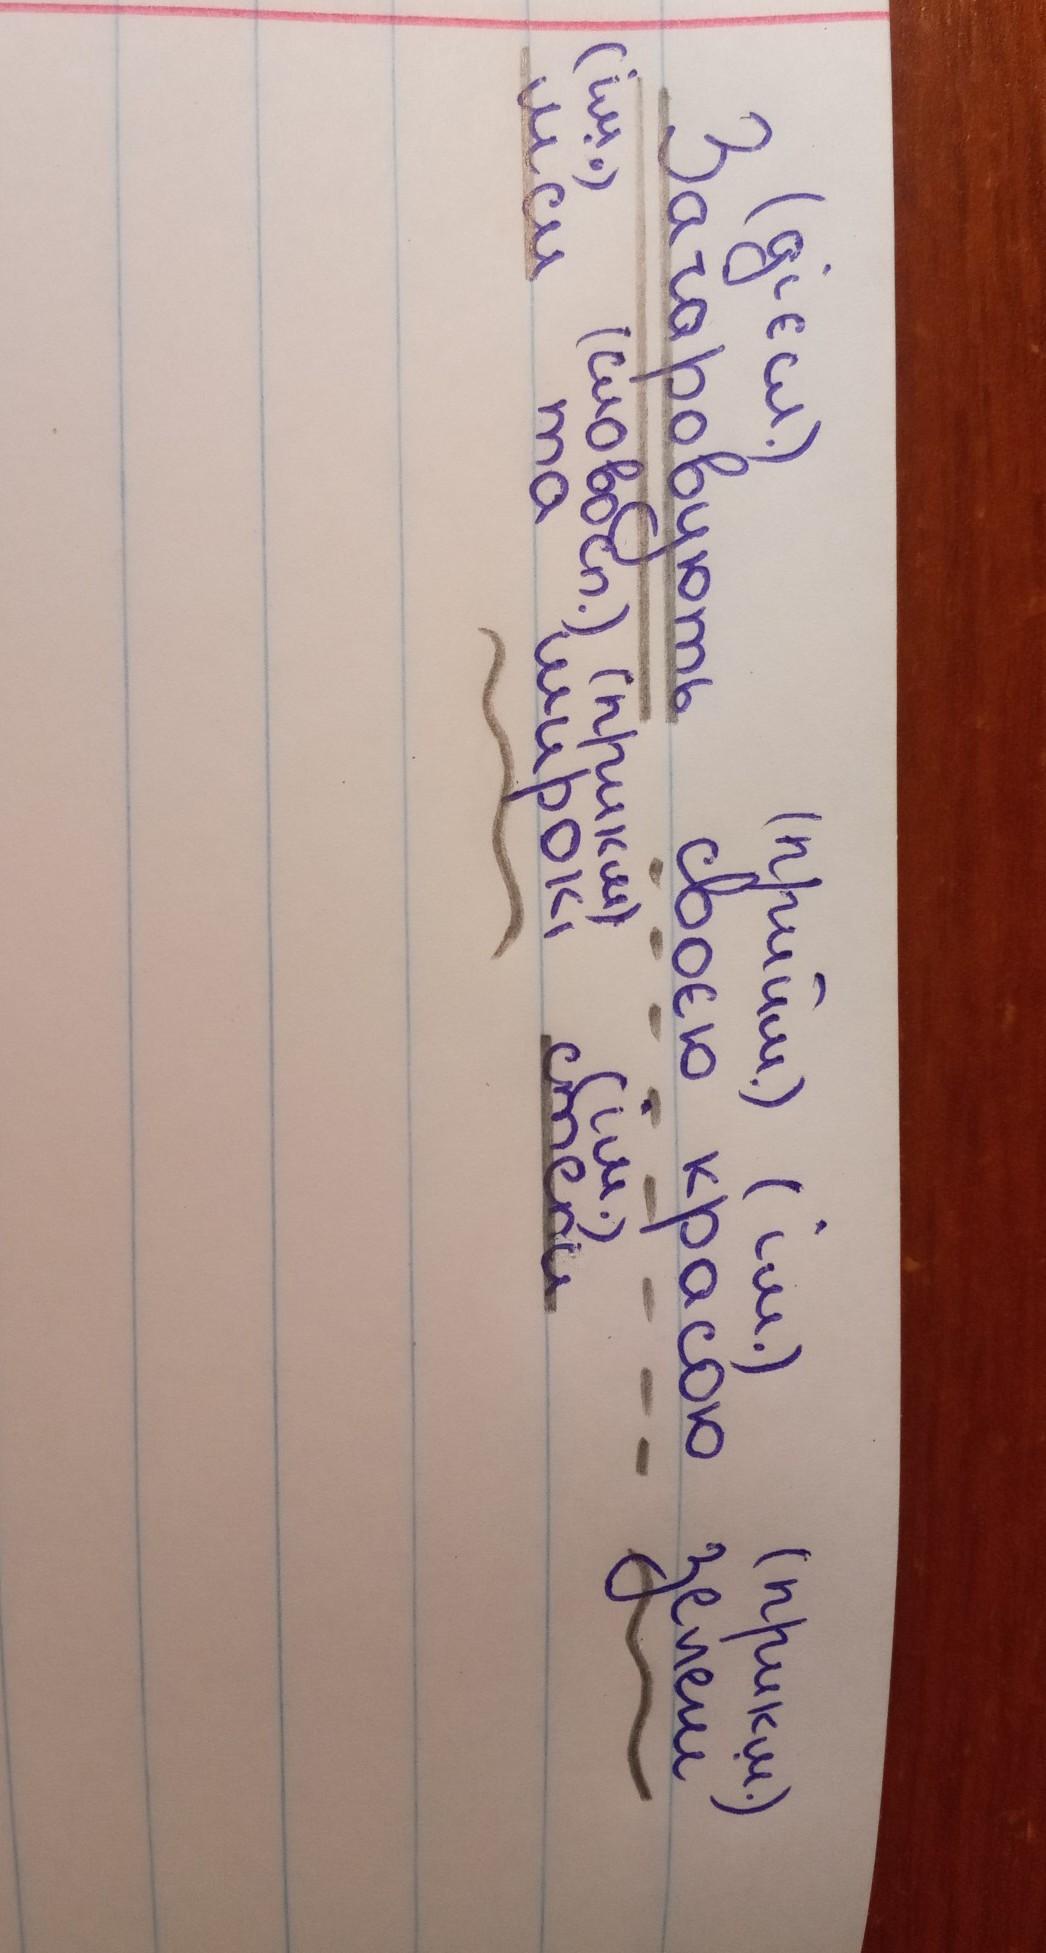 (дієсл.) (прийм.) (ім.) (прикм.)
Зачаровують своєю красою зелені
(ім.) (словосп.) (прикм) (ім.)
ліси та широкі степи